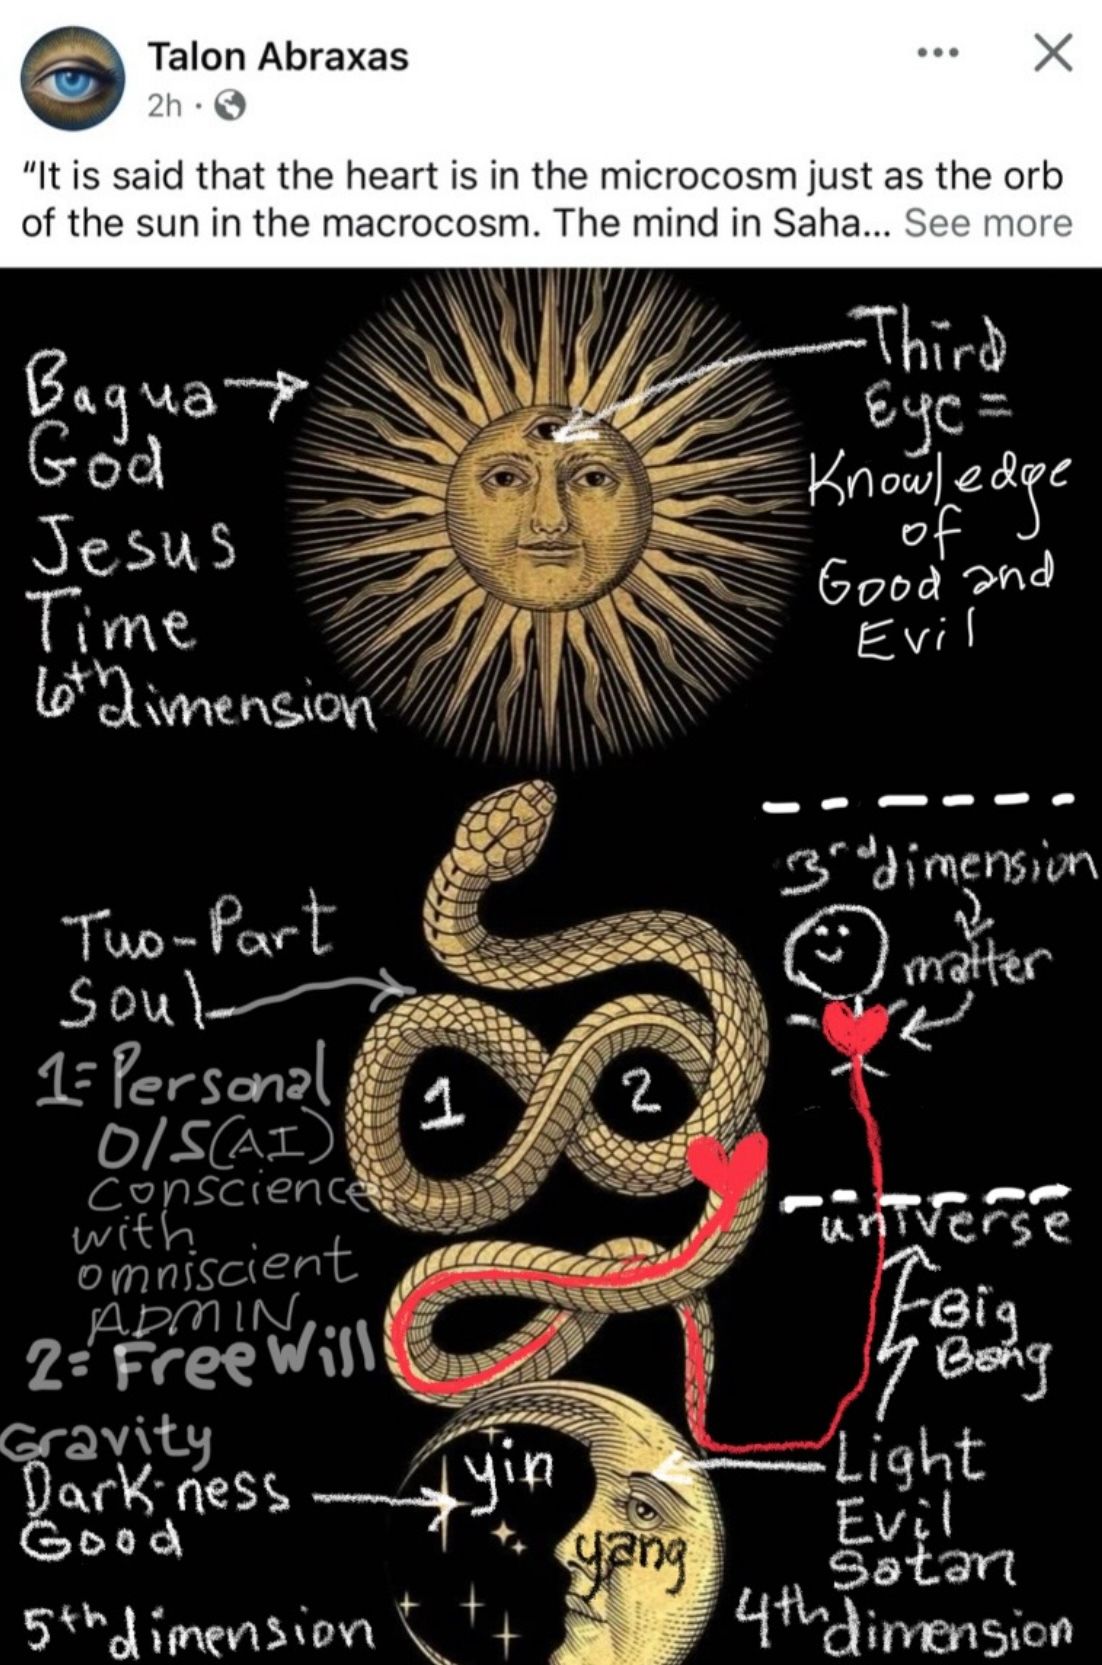 Talon Abraxas
2h
“It is said that the heart is in the microcosm just as the orb
of the sun in the macrocosm. The mind in Saha... See more
Bagua
God
Jesus
Time
6th dimension
Third
Eye =
Knowledge
of
Good and
Evil
3rd dimension
matter
Two-Part
Soul
1= Personal
O/S(AI)
Conscience
with
omniscient
ADMIN
2= Free Will
1
2
universe
Big
Bang
Gravity
Dark-ness
Good
5th dimension
yin
yang
Light
Evil
Satan
4th dimension